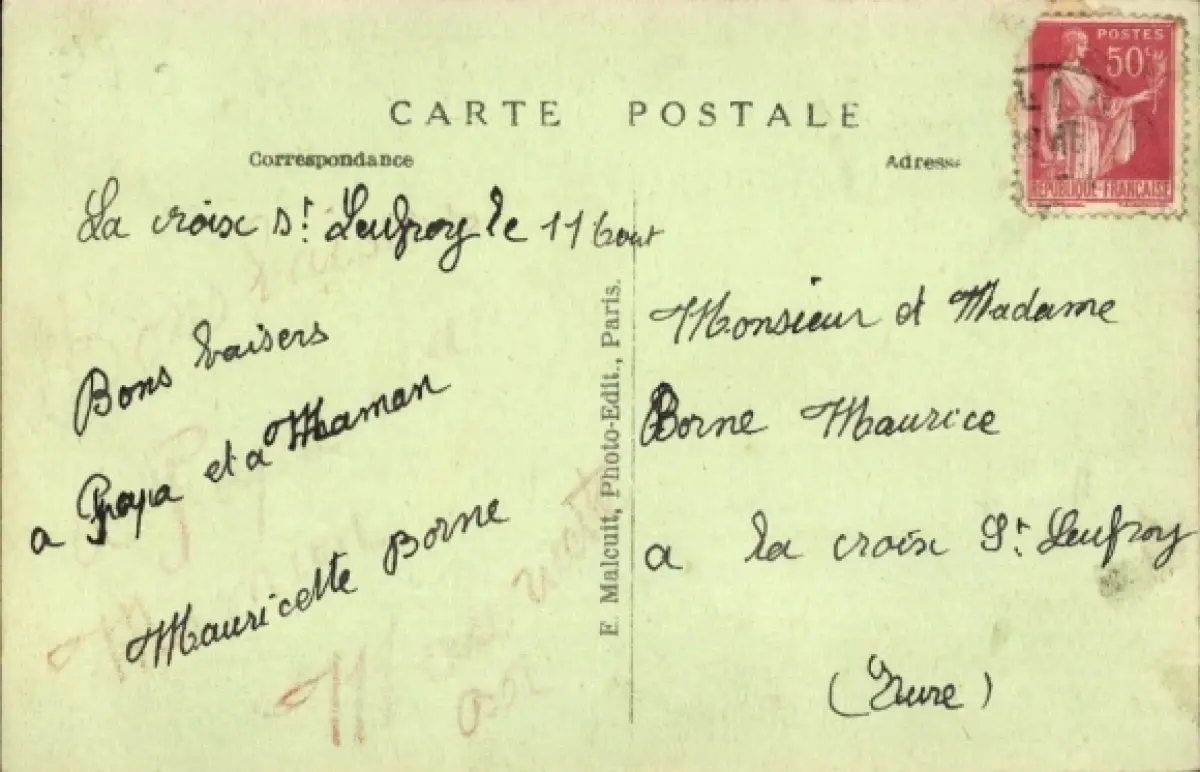 CARTE POSTALE
Correspondance
Adresse
POSTES
50c
REPUBLIQUE-FRANÇAISE
La croix St Leufroy le 11 Aout
Bons baisers
a Papa et a Maman
Mauricette Borne
E. Malcuit, Photo-Edit., Paris.
Monsieur et Madame
Borne Maurice
a la croix St Leufroy
(Eure)